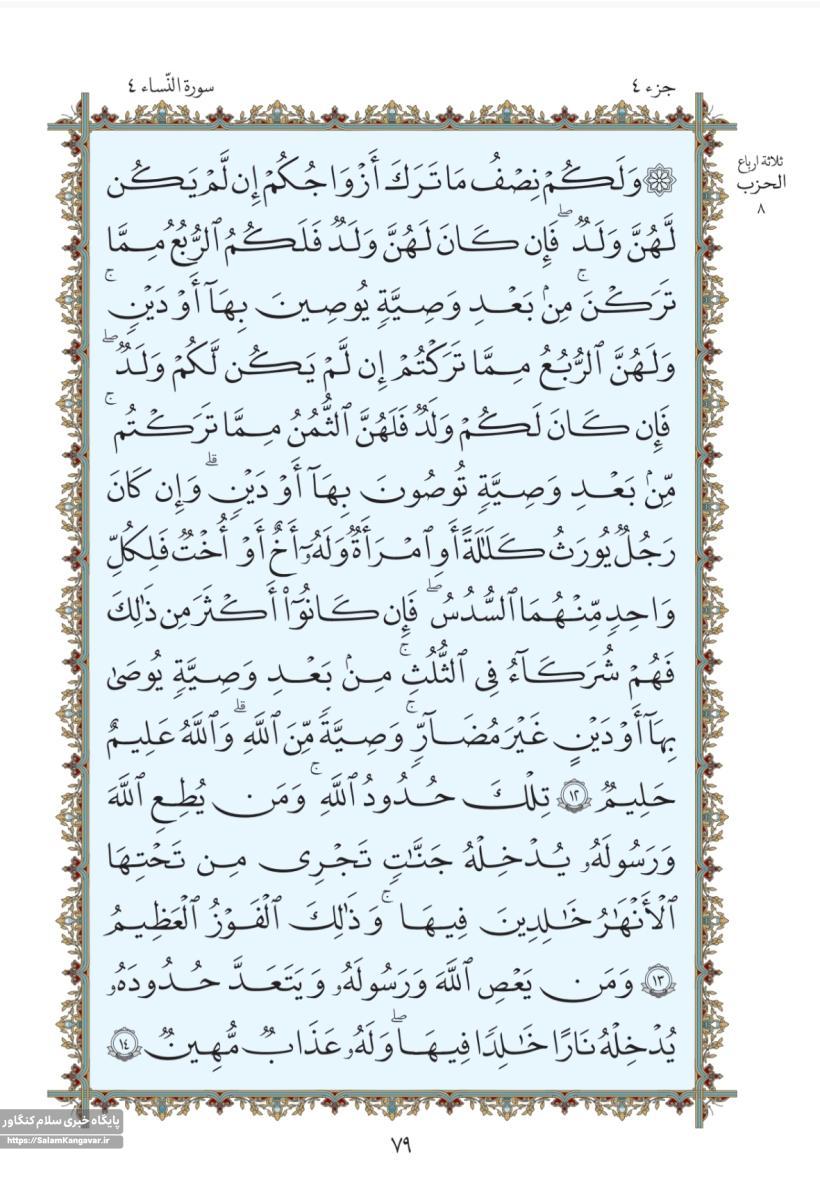 جزء ٤
سورة النّساء ٤
ثلاثة ارباع
الحزب
٨
۞ وَلَكُمْ نِصْفُ مَا تَرَكَ أَزْوَاجُكُمْ إِن لَّمْ يَكُن
لَّهُنَّ وَلَدٌ ۖ فَإِن كَانَ لَهُنَّ وَلَدٌ فَلَكُمُ ٱلرُّبُعُ مِمَّا
تَرَكْنَ ۚ مِنۢ بَعْدِ وَصِيَّةٍ يُوصِينَ بِهَآ أَوْ دَيْنٍ ۚ
وَلَهُنَّ ٱلرُّبُعُ مِمَّا تَرَكْتُمْ إِن لَّمْ يَكُن لَّكُمْ وَلَدٌ ۖ
فَإِن كَانَ لَكُمْ وَلَدٌ فَلَهُنَّ ٱلثُّمُنُ مِمَّا تَرَكْتُم ۚ
مِّنۢ بَعْدِ وَصِيَّةٍ تُوصُونَ بِهَآ أَوْ دَيْنٍ ۗ وَإِن كَانَ
رَجُلٌ يُورَثُ كَلَٰلَةً أَوِ ٱمْرَأَةٌ وَلَهُۥٓ أَخٌ أَوْ أُخْتٌ فَلِكُلِّ
وَاحِدٍ مِّنْهُمَا ٱلسُّدُسُ ۖ فَإِن كَانُوٓا۟ أَكْثَرَ مِن ذَٰلِكَ
فَهُمْ شُرَكَآءُ فِى ٱلثُّلُثِ ۚ مِنۢ بَعْدِ وَصِيَّةٍ يُوصَىٰ
بِهَآ أَوْ دَيْنٍ غَيْرَ مُضَآرٍّ ۚ وَصِيَّةً مِّنَ ٱللَّهِ ۗ وَٱللَّهُ عَلِيمٌ
حَلِيمٌ ١٢ تِلْكَ حُدُودُ ٱللَّهِ ۚ وَمَن يُطِعِ ٱللَّهَ
وَرَسُولَهُۥ يُدْخِلْهُ جَنَّٰتٍ تَجْرِى مِن تَحْتِهَا
ٱلْأَنْهَٰرُ خَٰلِدِينَ فِيهَا ۚ وَذَٰلِكَ ٱلْفَوْزُ ٱلْعَظِيمُ
١٣ وَمَن يَعْصِ ٱللَّهَ وَرَسُولَهُۥ وَيَتَعَدَّ حُدُودَهُۥ
يُدْخِلْهُ نَارًا خَٰلِدًا فِيهَا ۖ وَلَهُۥ عَذَابٌ مُّهِينٌ ١٤
٧٩
پایگاه خبری سلام کنگاور
https://SalamKangavar.ir